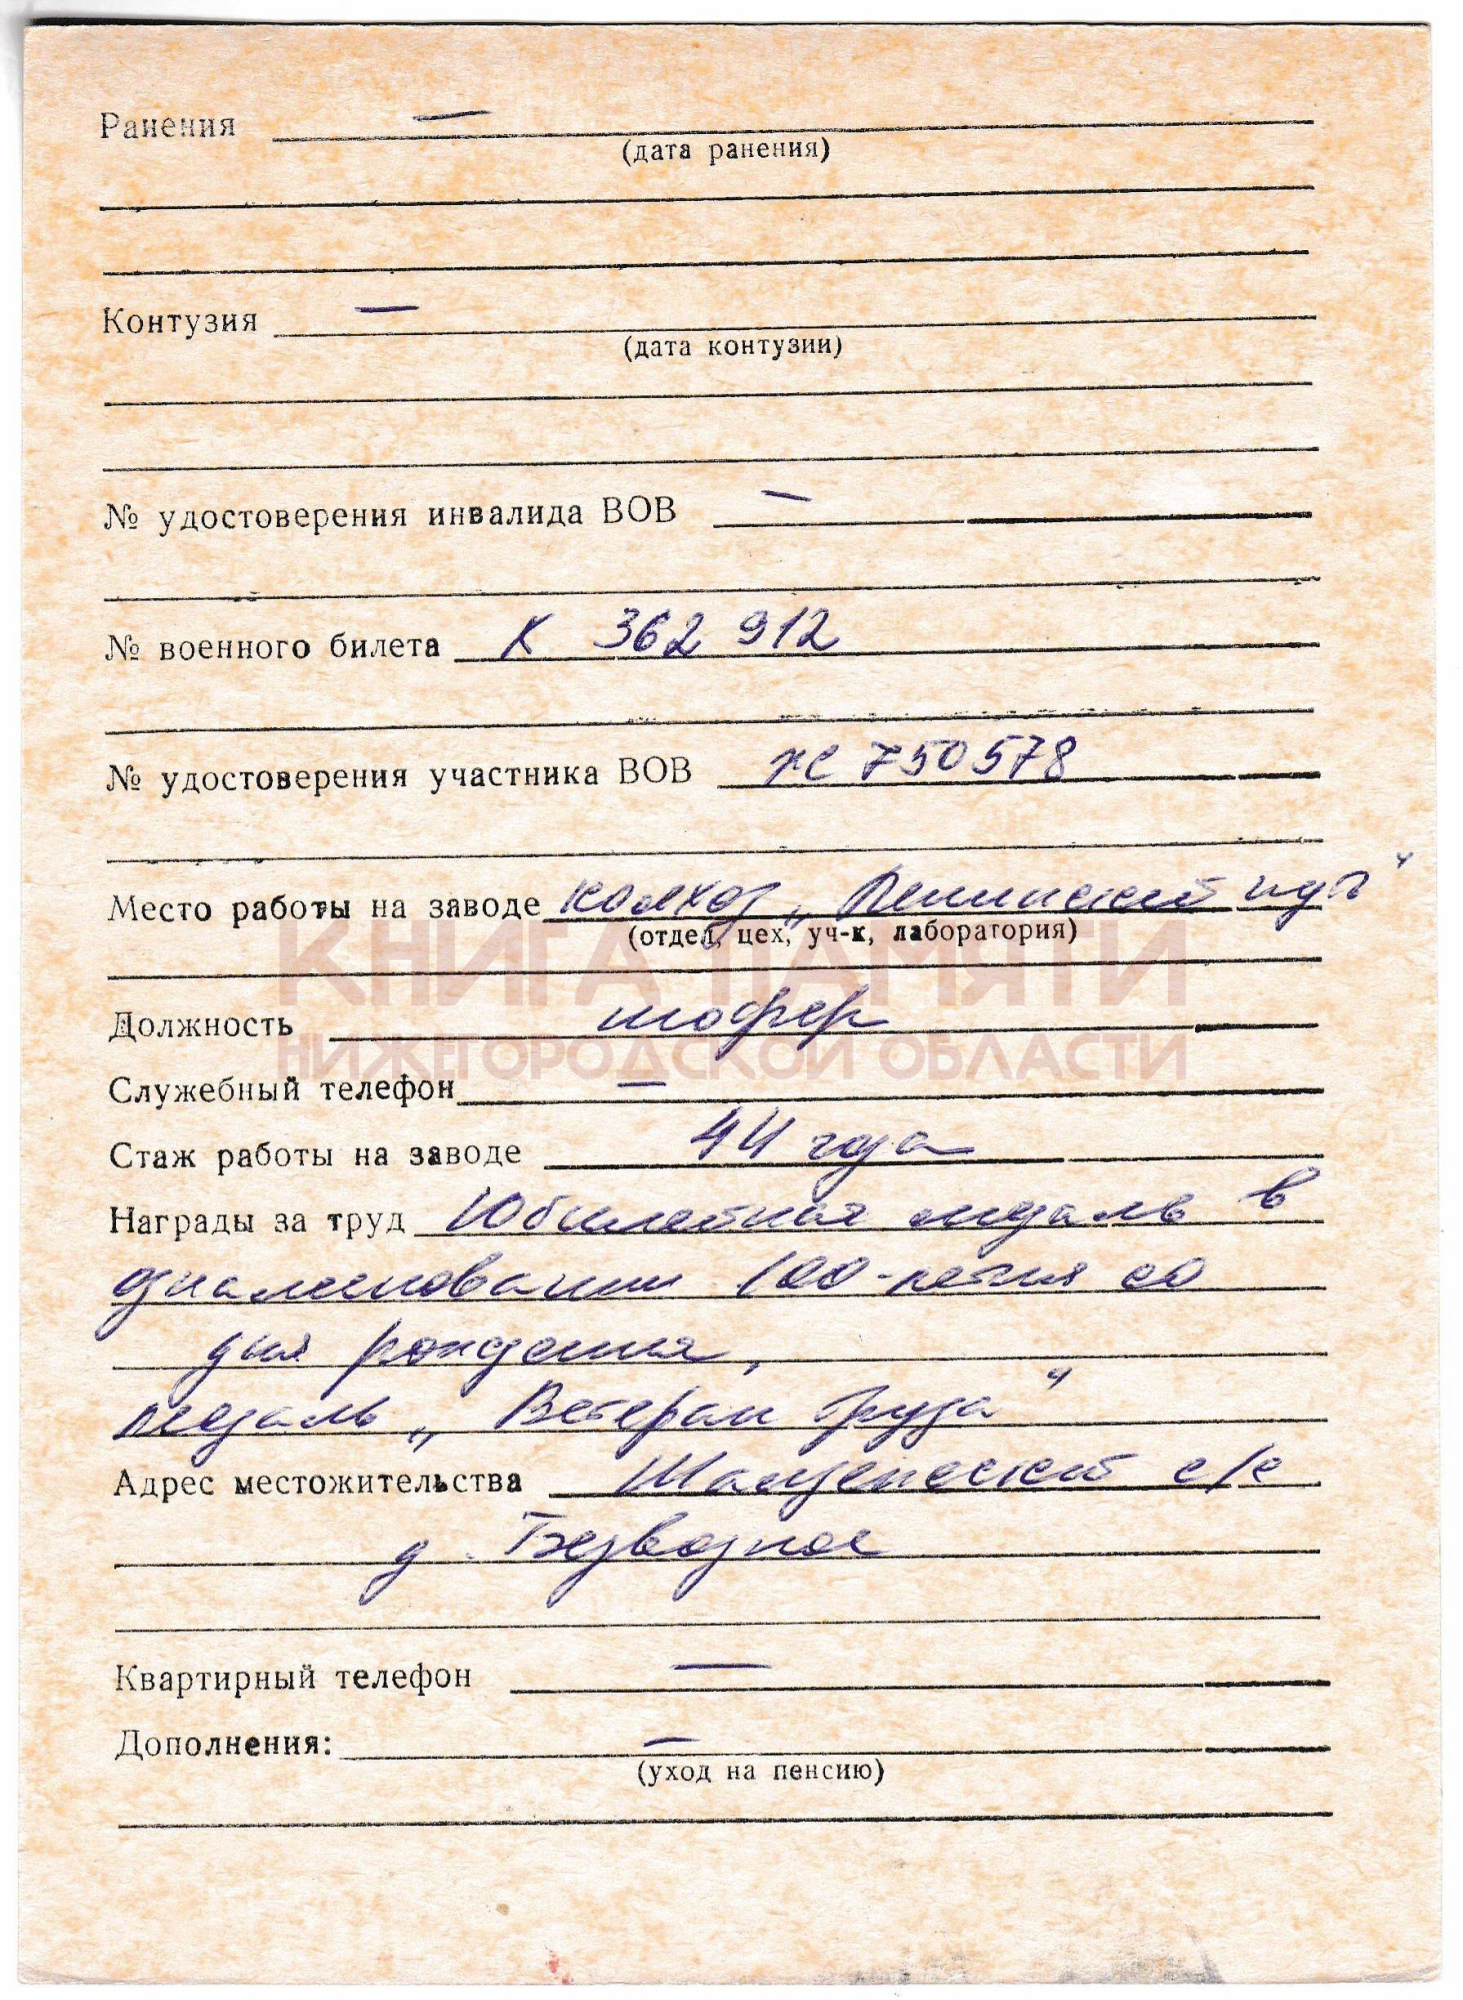 Ранения —
(дата ранения)
Контузия —
(дата контузии)
№ удостоверения инвалида ВОВ —
№ военного билета К 362 912
№ удостоверения участника ВОВ ЖС 750578
Место работы на заводе колхоз „Ленинский путь"
(отдел, цех, уч-к, лаборатория)
КНИГА ПАМЯТИ
Должность шофер
НИЖЕГОРОДСКОЙ ОБЛАСТИ
Служебный телефон —
Стаж работы на заводе 44 года
Награды за труд Юбилейная медаль в
ознаменовании 100-летия со
дня рождения,
медаль „Ветеран труда"
Адрес местожительства с/с
д. Безводное
Квартирный телефон —
Дополнения: —
(уход на пенсию)